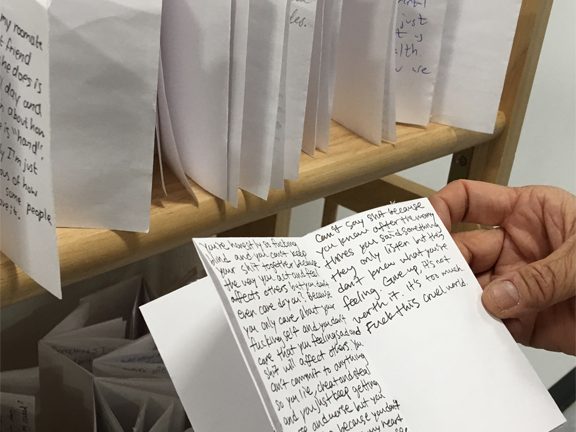 my roommate
friend
he does is
day and
about how
e is "hard"
y I'm just
ous of how
some people
les.
just
t is
alth
u are
you're honestly a fucking
and you can't keep
your shit together because
the way you act and feel
affects others but you don't
even care do you? because
you only care about your
fucking self and you don't
care that you feeling sad and
shit will affect others. you
can't commit to anything
so you lie, cheat and steal
and you just keep getting
worse and worse but you
because you don't
my heart
Can't say shit because
you know after the many
times you said something
they only listen but they
don't know what you're
feeling. Give up, it's not
worth it. It's to much
Fuck this cruel world.